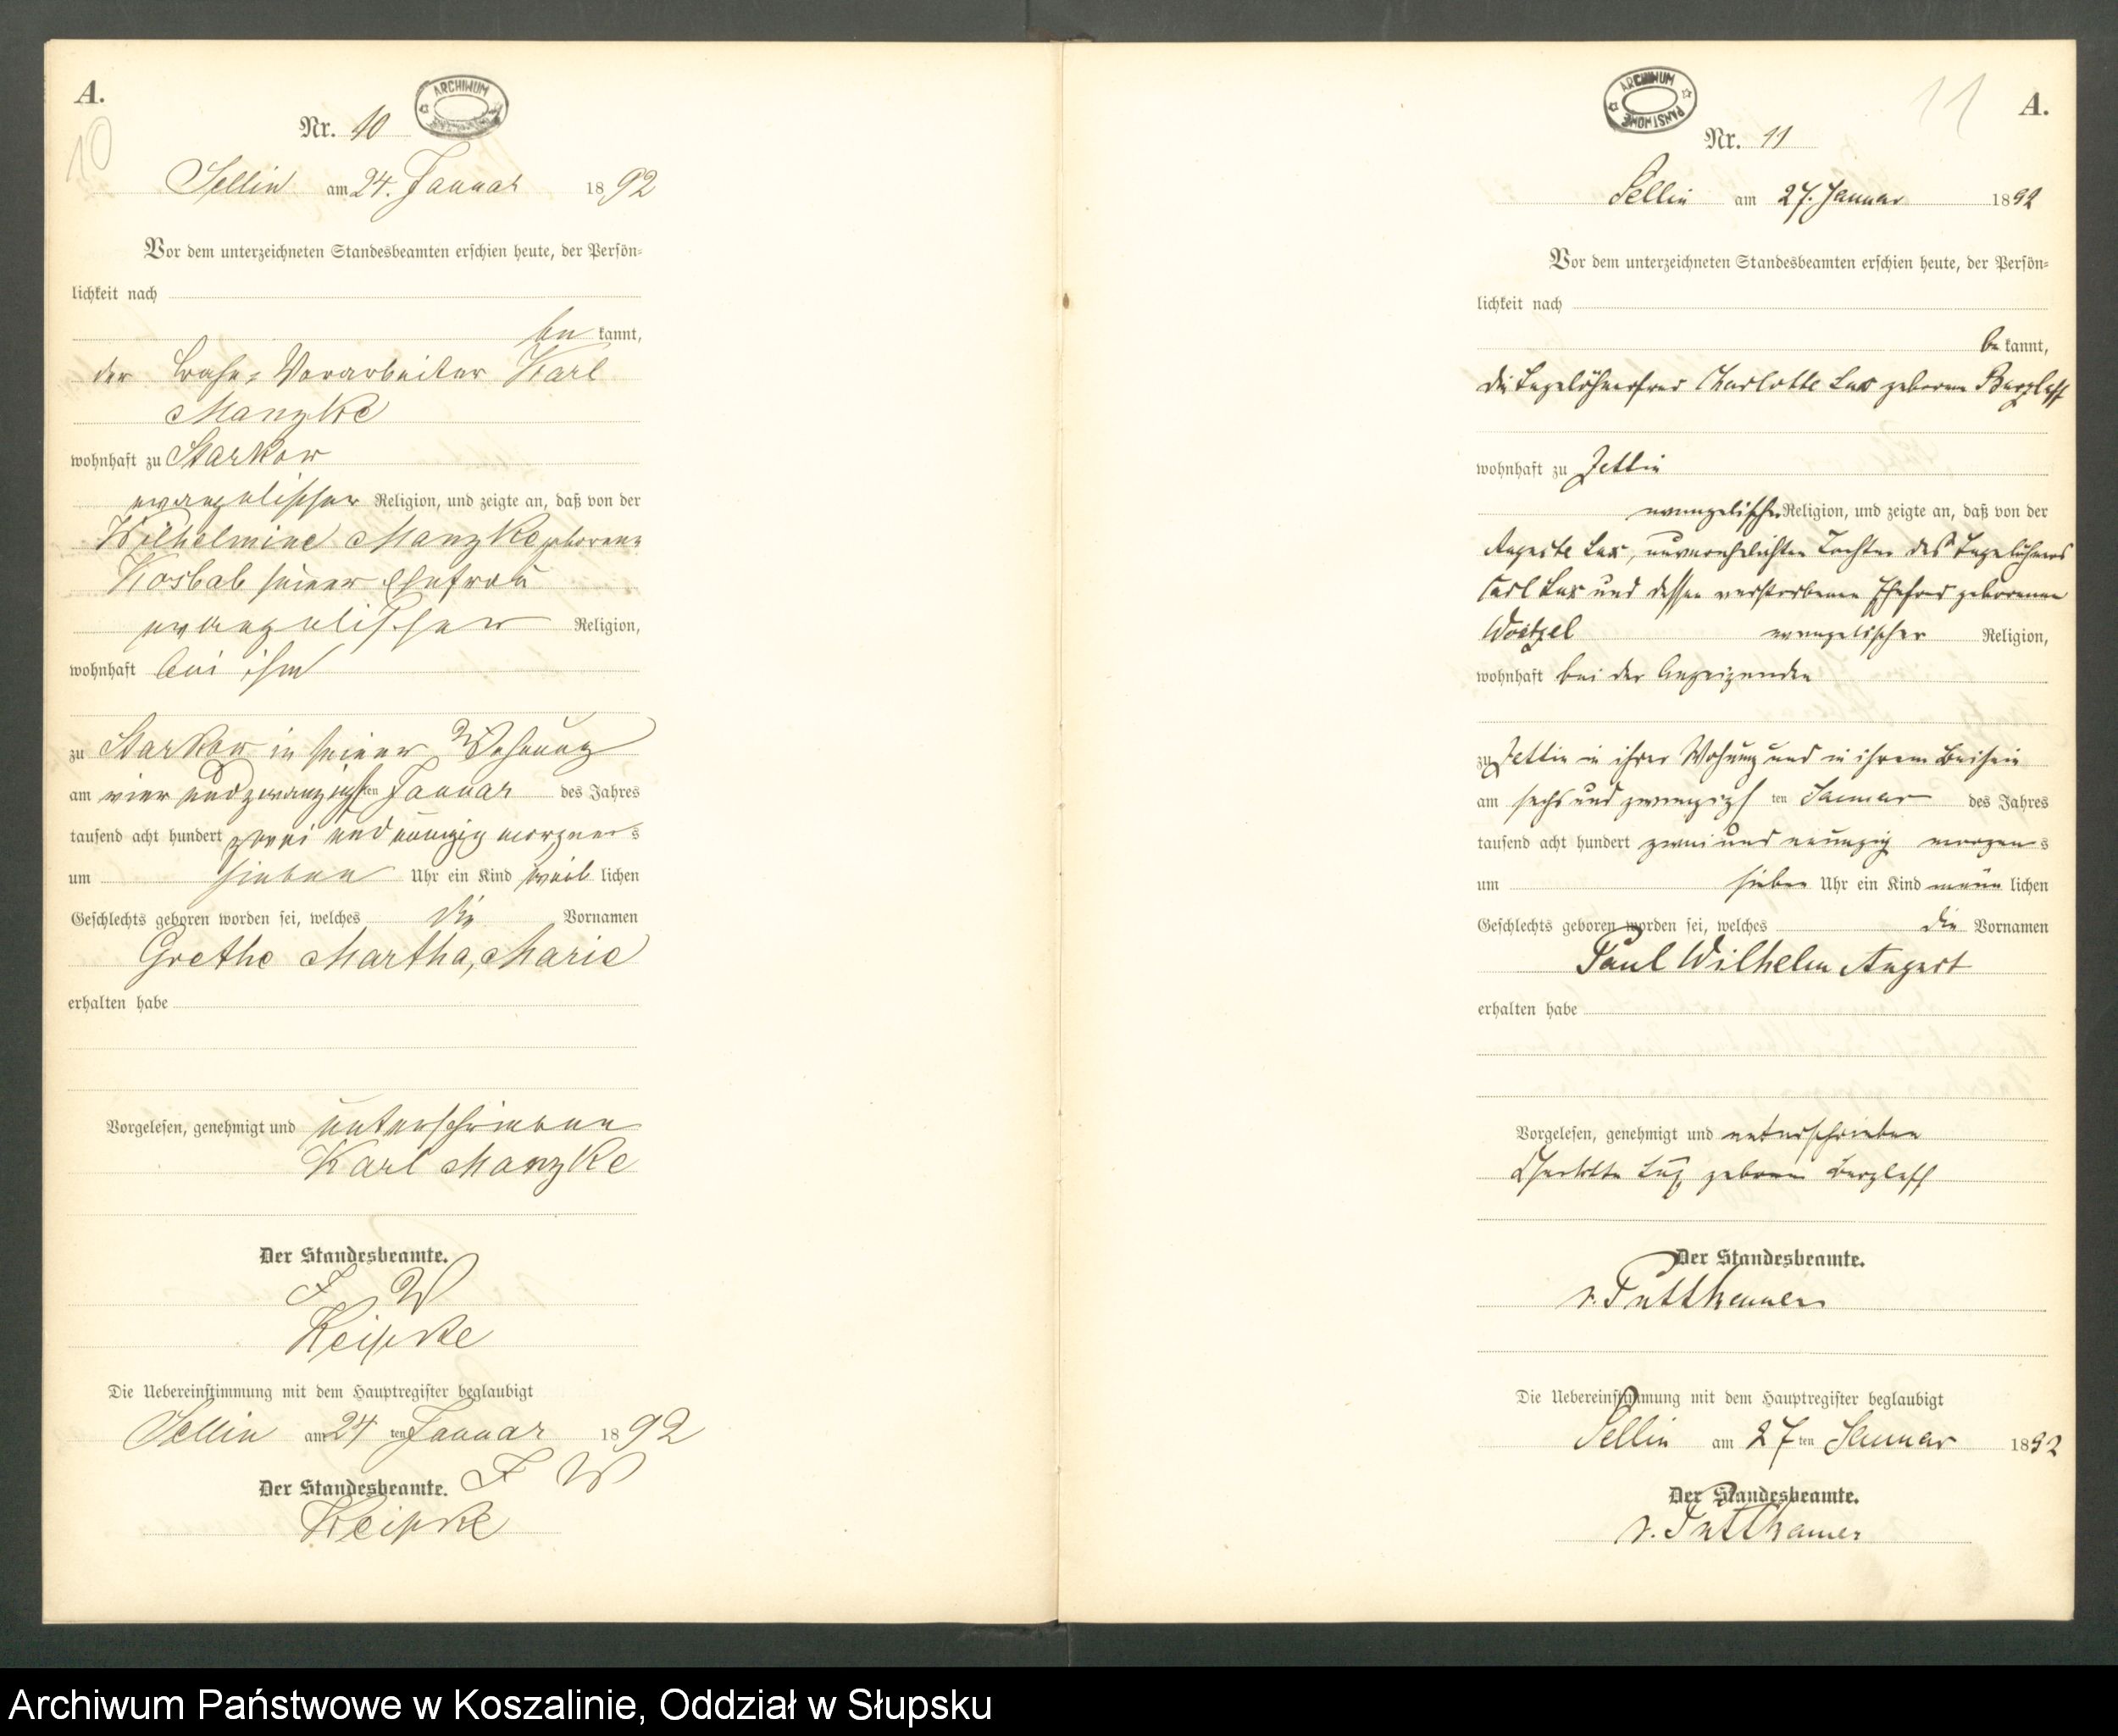 A.
10
ARCHIWUM
Nr. 10
Sellin am 24. Januar 1892
Vor dem unterzeichneten Standesbeamten erschien heute, der Persön-
lichkeit nach
be kannt,
der Bahn-Vorarbeiter Karl
Manzke
wohnhaft zu Starkow
evangelischer Religion, und zeigte an, daß von der
Wilhelmine Manzke geborene
Kosbab seiner Ehefrau
evangelischer Religion,
wohnhaft bei ihm
zu Starkow in seiner Wohnung
am vier und zwanzigsten Januar des Jahres
tausend acht hundert zwei und neunzig morgens
um sieben Uhr ein Kind weib lichen
Geschlechts geboren worden sei, welches die Vornamen
Grethe Martha, Marie
erhalten habe
Vorgelesen, genehmigt und unterschrieben
Karl Manzke
Der Standesbeamte.
F W
Keipke
Die Uebereinstimmung mit dem Hauptregister beglaubigt
Sellin am 24 ten Januar 1892
Der Standesbeamte. F W
Keipke
11
A.
ARCHIWUM PAŃSTWOWE
Nr. 11
Sellin am 27. Januar 1892
Vor dem unterzeichneten Standesbeamten erschien heute, der Persön-
lichkeit nach
be kannt,
die Tagelöhnerfrau Charlotte Lux geborene Barzlaff
wohnhaft zu Zettin
evangelischer Religion, und zeigte an, daß von der
Auguste Lux, unverehelichten Tochter des Tagelöhners
Carl Lux und dessen verstorbenen Ehefrau geborenen
Woitzel evangelischer Religion,
wohnhaft bei der Anzeigenden
zu Zettin in ihrer Wohnung und in ihrem Beisein
am sechs und zwanzigs ten Januar des Jahres
tausend acht hundert zwei und neunzig morgens
um sieben Uhr ein Kind männ lichen
Geschlechts geboren worden sei, welches die Vornamen
Paul Wilhelm August
erhalten habe
Vorgelesen, genehmigt und unterschrieben
Charlotte Lux geboren Barzlaff
Der Standesbeamte.
v. Puttkamer
Die Uebereinstimmung mit dem Hauptregister beglaubigt
Sellin am 27 ten Januar 1892
Der Standesbeamte.
v. Puttkamer
Archiwum Państwowe w Koszalinie, Oddział w Słupsku